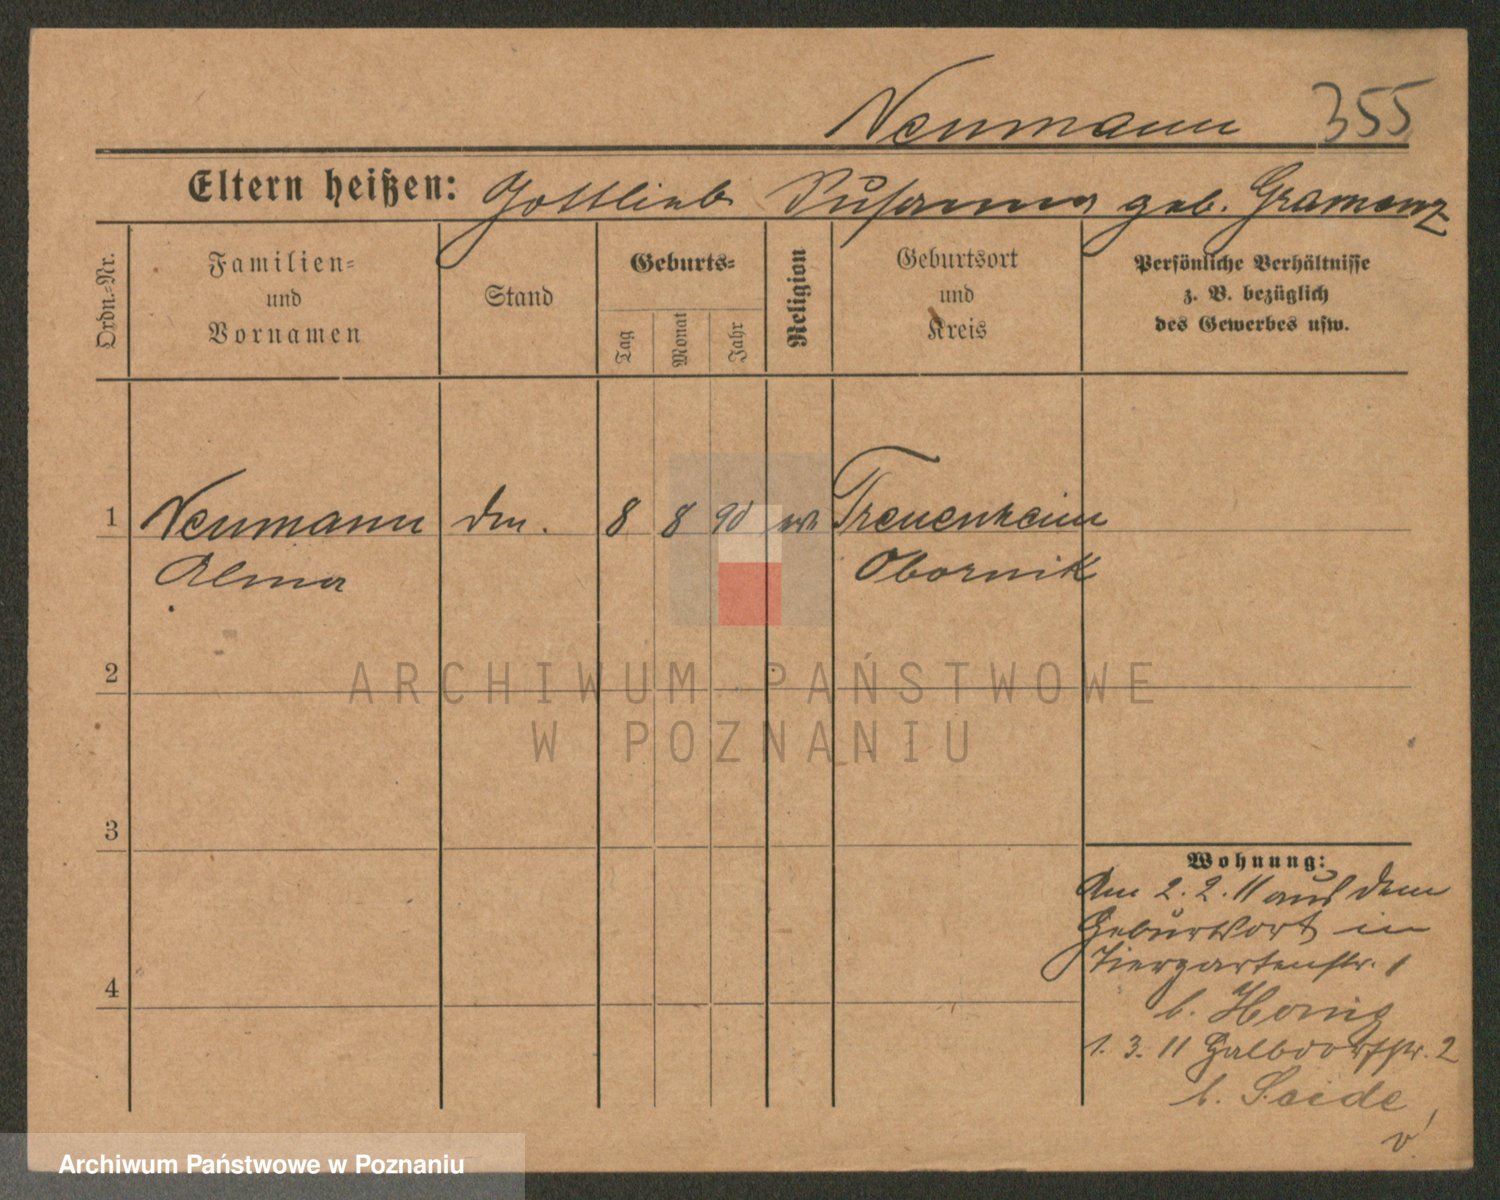 Neumann 355
Eltern heißen: Gottlieb Susanna geb. Gramenz
Ordn.-Nr.
Familien-
und
Vornamen
Stand
Geburts-
Tag
Monat
Jahr
Religion
Geburtsort
und
Kreis
Persönliche Verhältnisse
z. B. bezüglich
des Gewerbes usw.
1 Neumann 8 8 90 ev Treuenheim
Alma Obornik
2
3
4
Wohnung:
Am 2.2.11 aus dem
Geburtsort in
Tiergartenstr. 1
b. Honig
1. 3. 11 Halbdorfstr. 2
b. Seide
ARCHIWUM PAŃSTWOWE
W POZNANIU
Archiwum Państwowe w Poznaniu